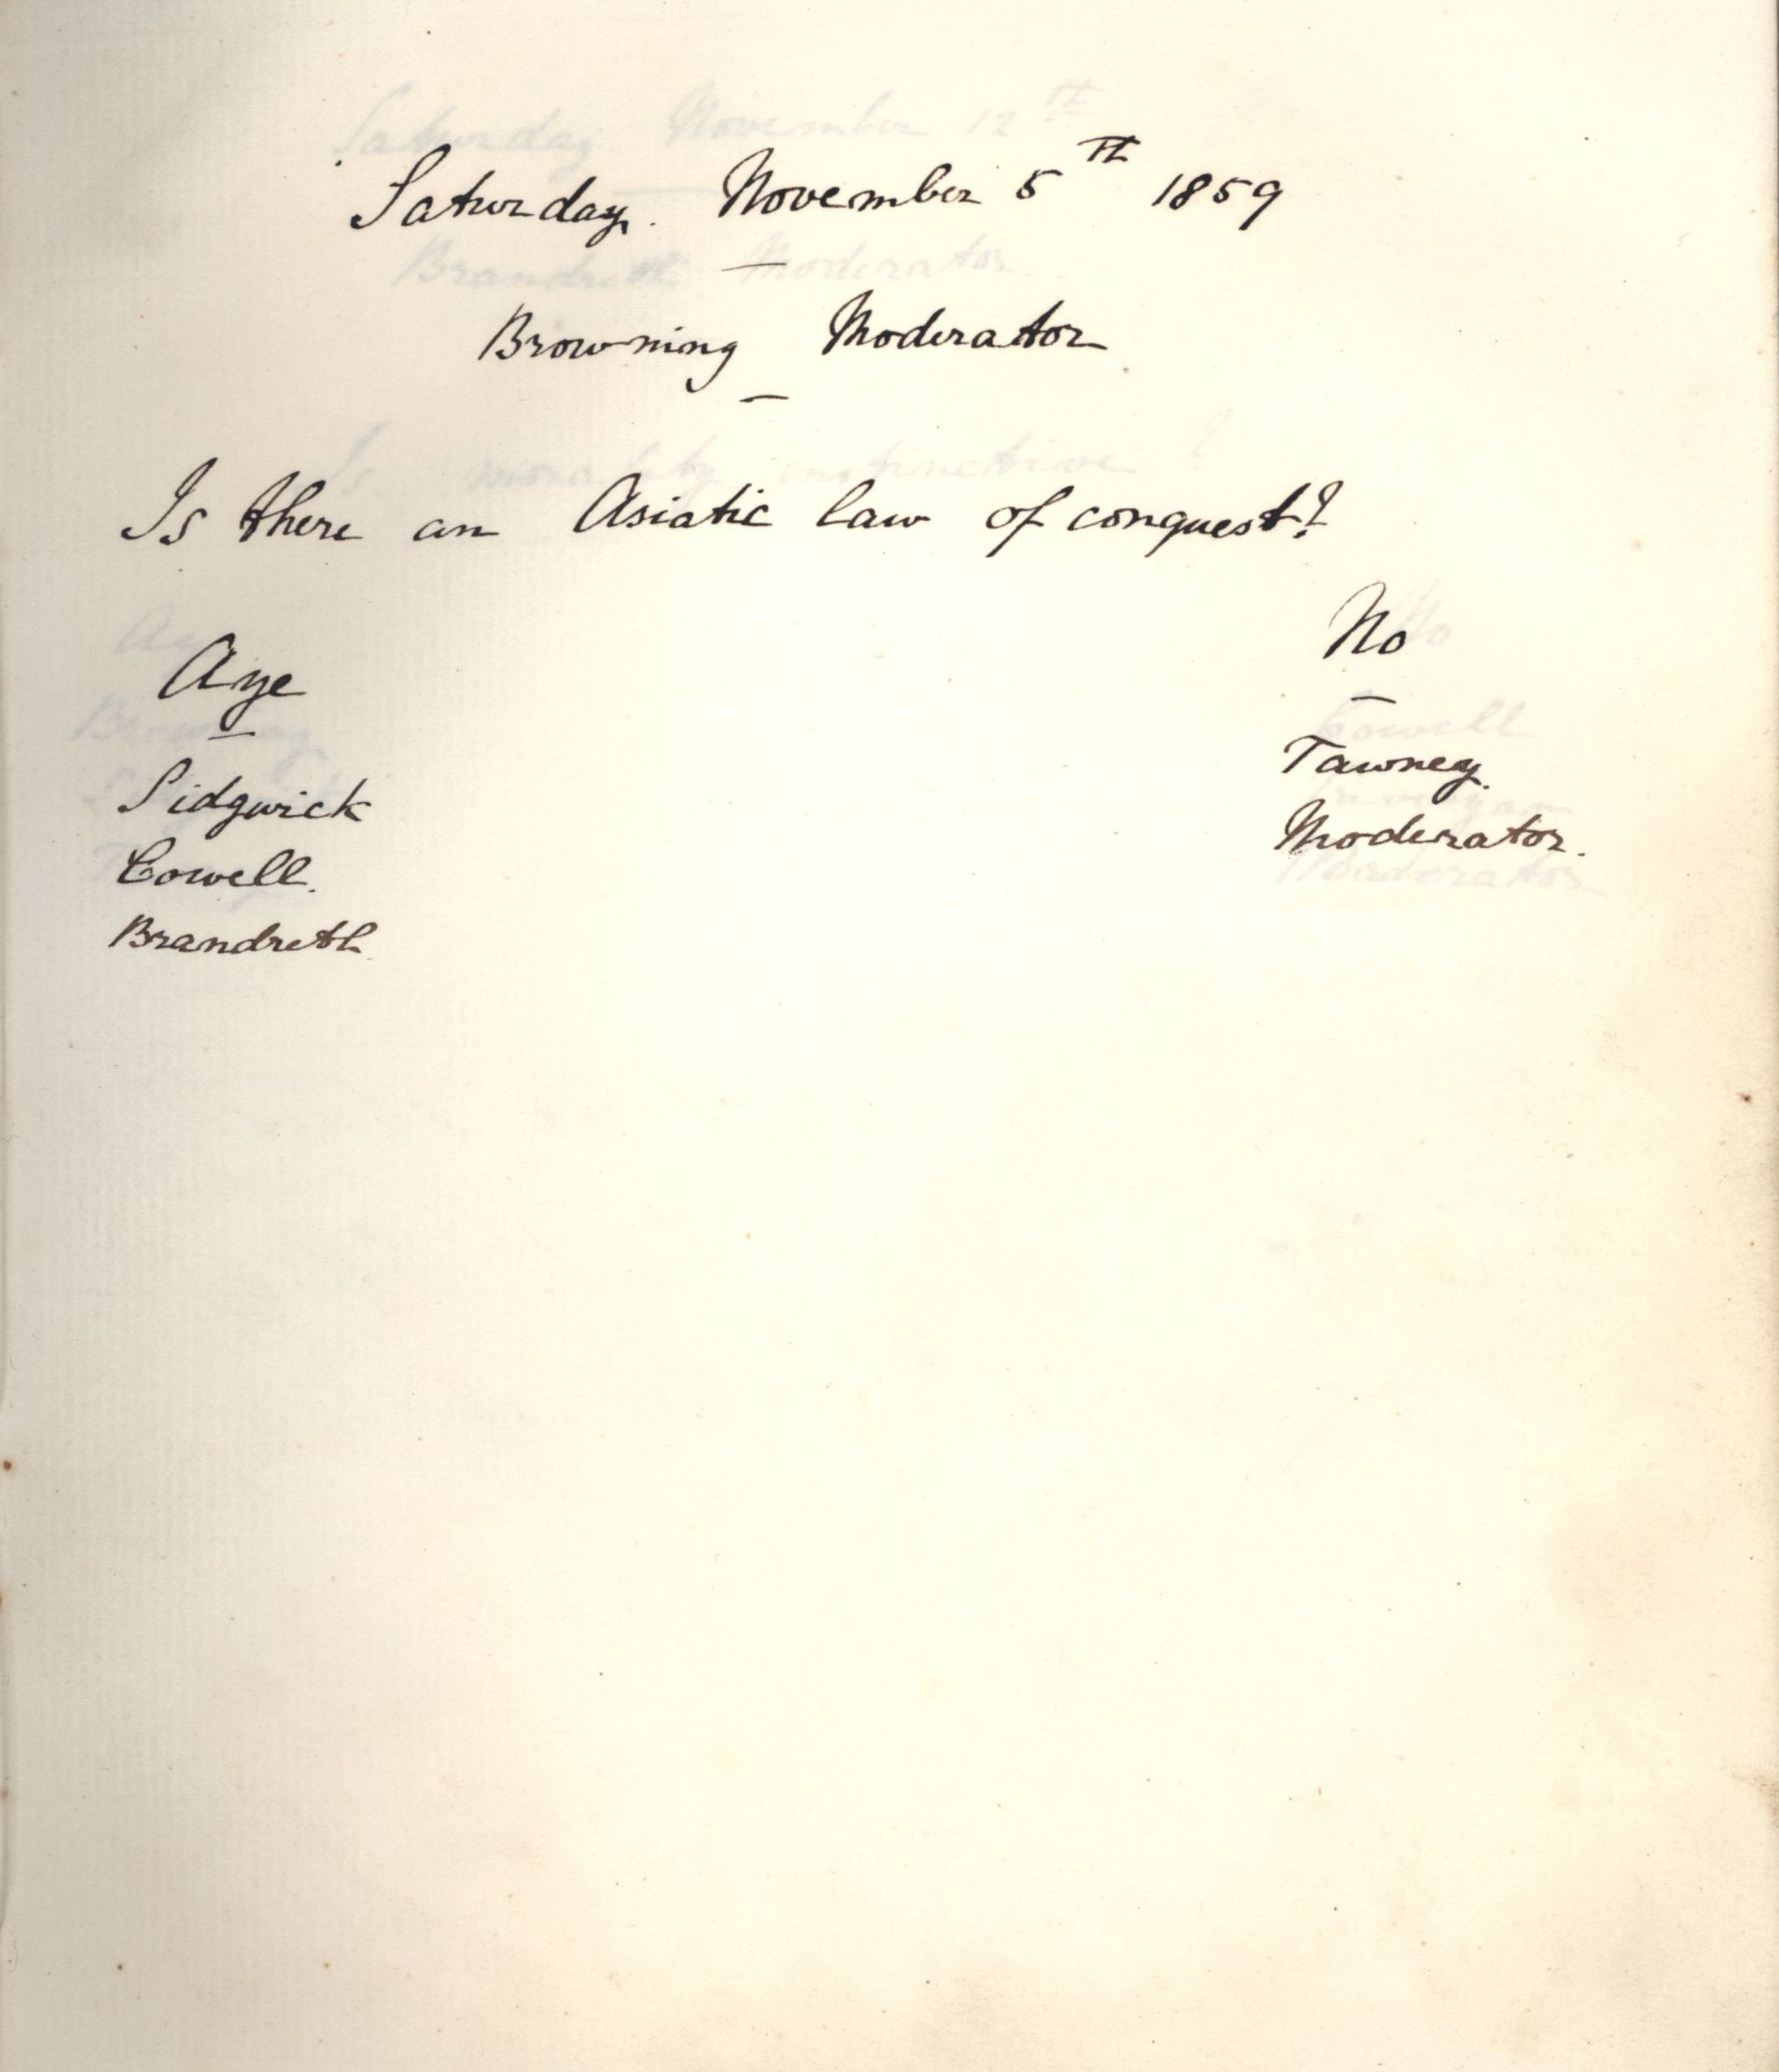 Saturday. November 5th 1859
Browning Moderator
Is there an Asiatic law of conquest?
No
Aye
Tawney.
Sidgwick
Moderator.
Cowell.
Brandreth